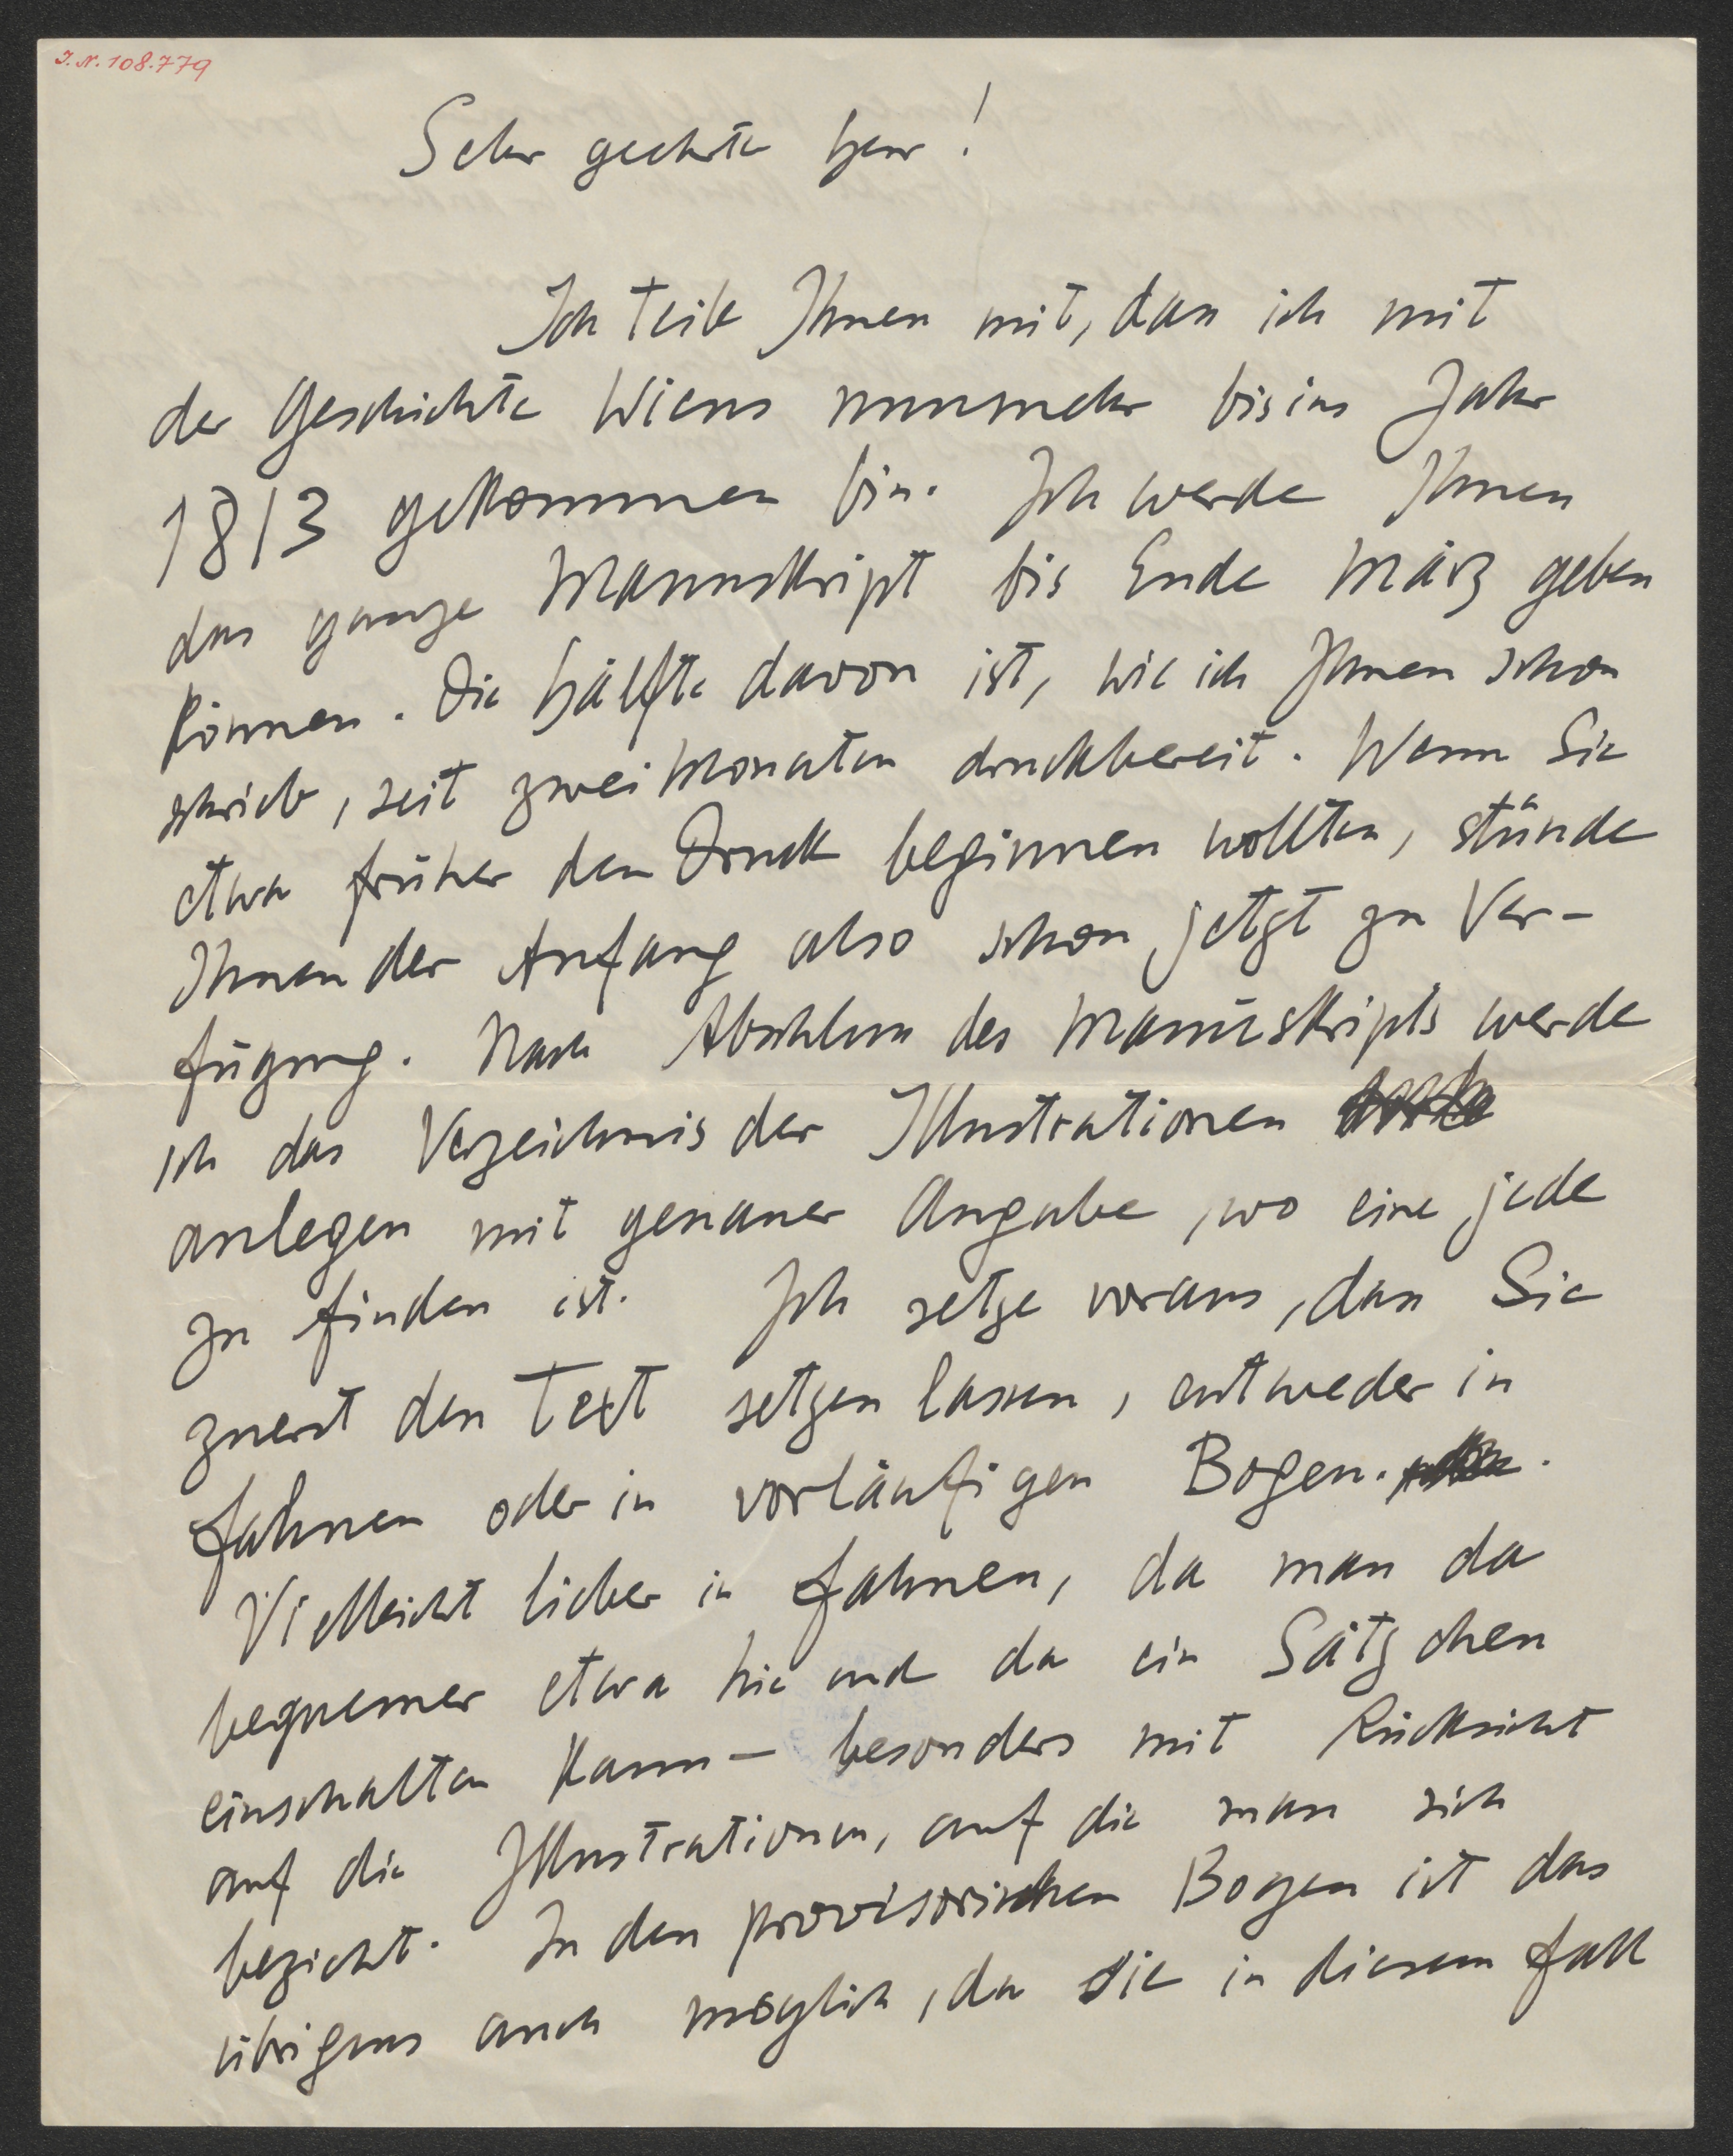 J.N. 108.779
Sehr geehrter Herr!
Ich teile Ihnen mit, dass ich mit
der Geschichte Wiens nunmehr bis ins Jahr
1813 gekommen bin. Ich werde Ihnen
das ganze Manuskript bis Ende März geben
können. Die Hälfte davon ist, wie ich Ihnen schon
schrieb, seit zwei Monaten druckbereit. Wenn Sie
etwa früher den Druck beginnen wollten, stünde
Ihnen der Anfang also schon jetzt zu Ver-
fügung. Nach Abschluss des Manuskripts werde
ich das Verzeichnis der Illustrationen
anlegen mit genauer Angabe, wo eine jede
zu finden ist. Ich setze voraus, dass Sie
zuerst den Text setzen lassen, entweder in
Fahnen oder in vorläufigen Bogen.
Vielleicht lieber in Fahnen, da man da
bequemer etwa hie und da ein Sätzchen
einschalten kann – besonders mit Rücksicht
auf die Illustrationen, auf die man sich
bezieht. In den provisorischen Bogen ist das
übrigens auch möglich, da sie in diesem Fall